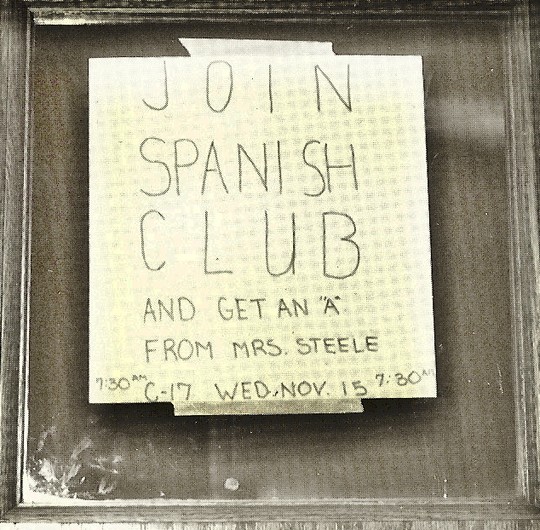 JOIN
SPANISH
CLUB
AND GET AN "A"
FROM MRS. STEELE
7:30 AM C-17 WED. NOV. 15 7:30 AM